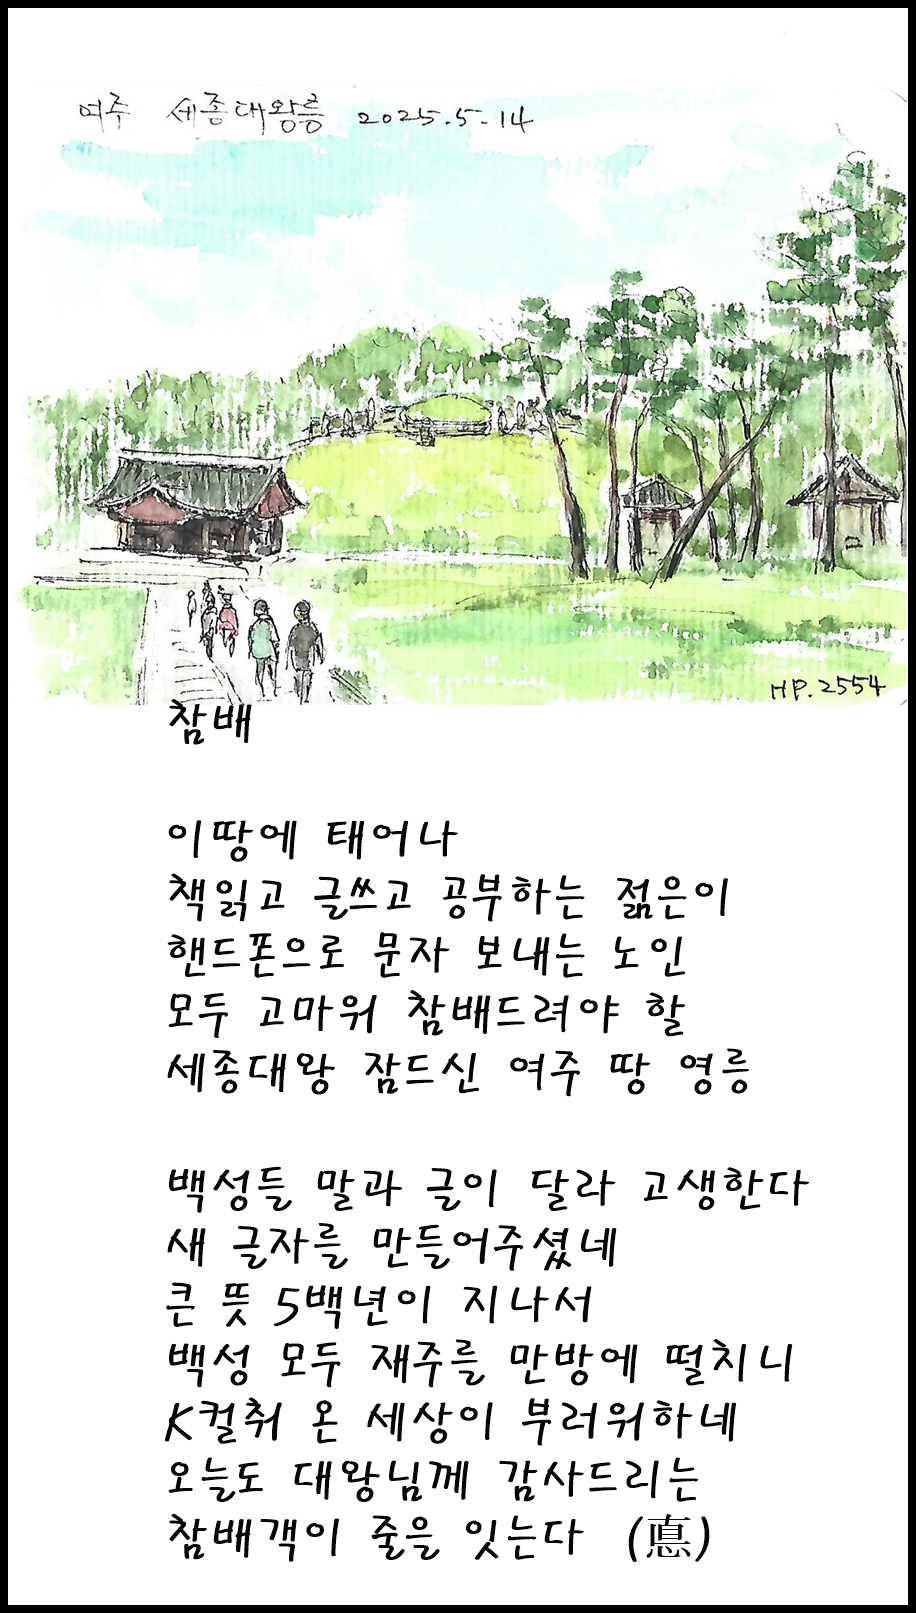 여주 세종대왕릉 2025.5.14
HP.2554
참배
이땅에 태어나
책읽고 글쓰고 공부하는 젊은이
핸드폰으로 문자 보내는 노인
모두 고마워 참배드려야 할
세종대왕 잠드신 여주 땅 영릉
백성들 말과 글이 달라 고생한다
새 글자를 만들어주셨네
큰 뜻 5백년이 지나서
백성 모두 재주를 만방에 떨치니
K컬취 온 세상이 부러워하네
오늘도 대왕님께 감사드리는
참배객이 줄을 잇는다 (悳)